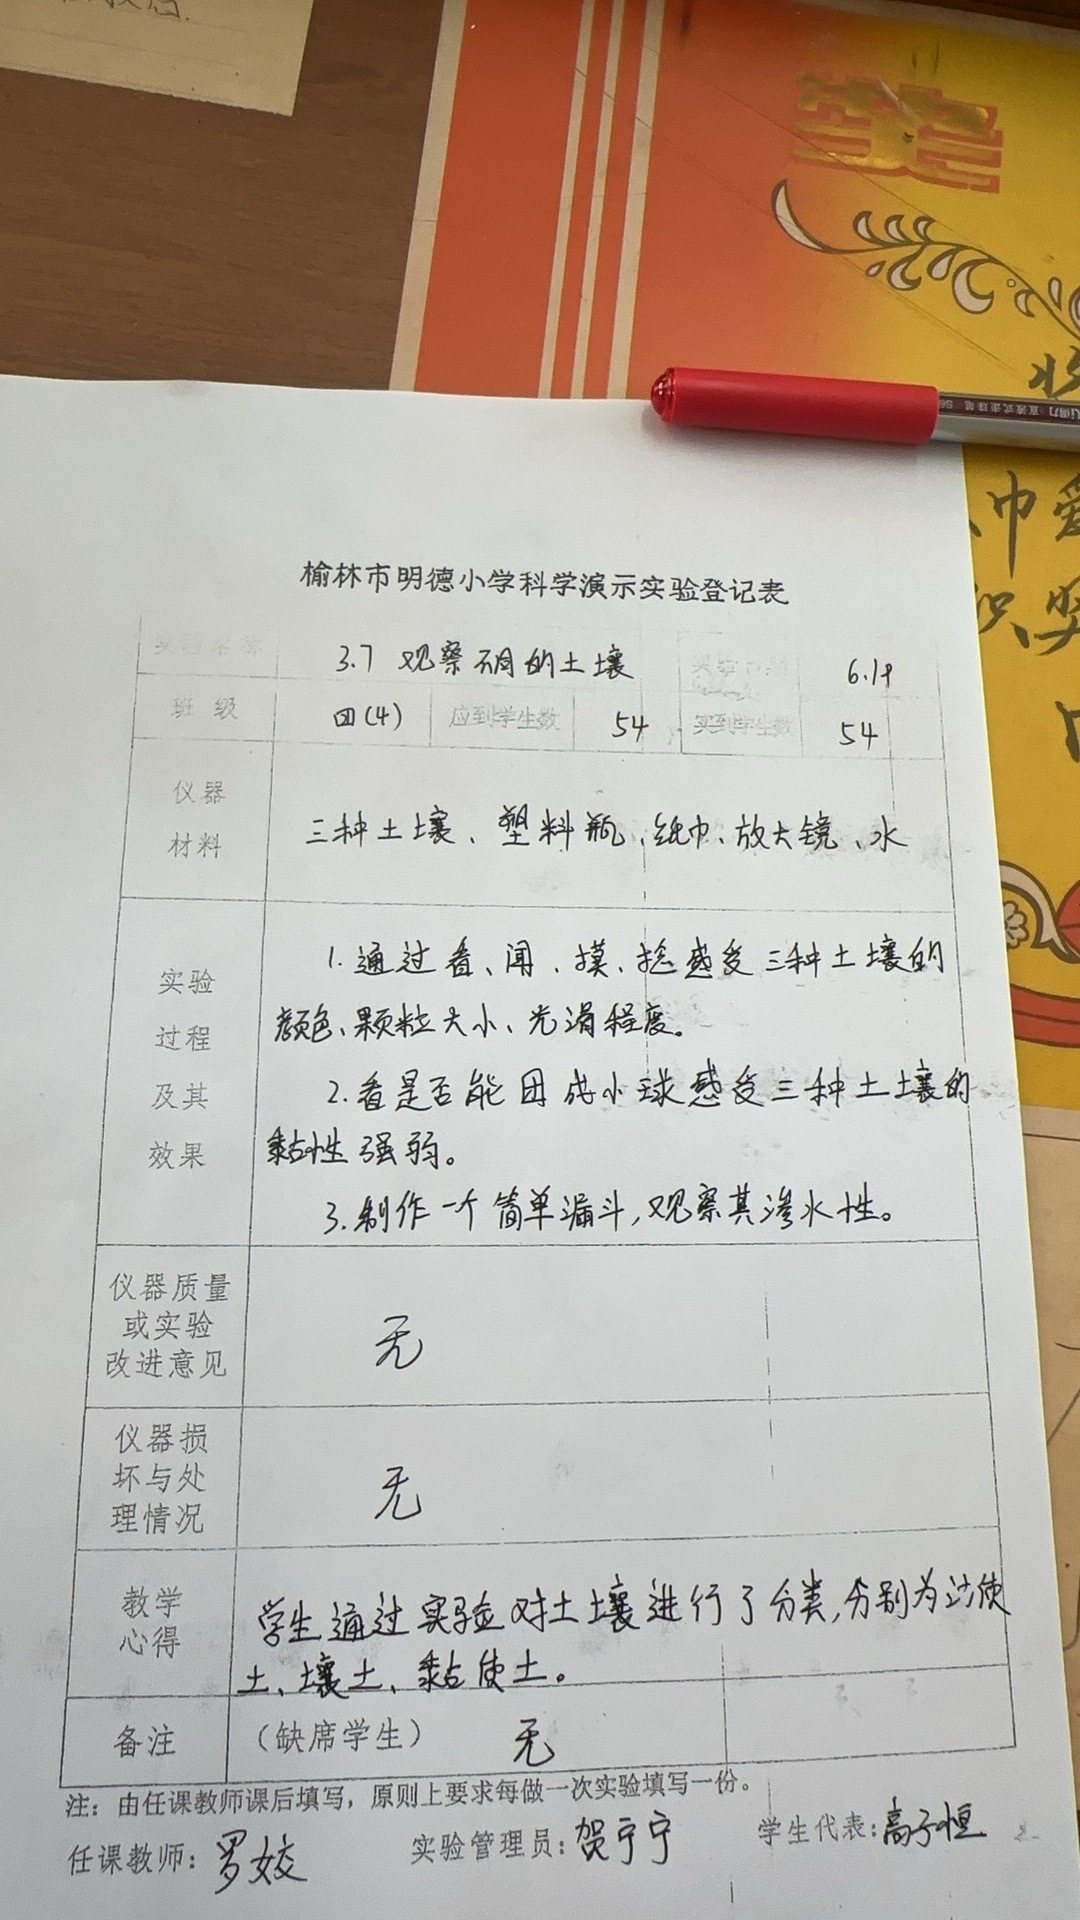 榆林市明德小学科学演示实验登记表
实验名称 3.7 观察硐的土壤 实验 6.18
班级 四(4) 应到学生数 54 实到学生数 54
仪器
材料
三种土壤、塑料瓶、纸巾、放大镜、水
实验
过程
及其
效果
1.通过看、闻、摸、捻感受三种土壤的
颜色、颗粒大小、光滑程度。
2.看是否能团成小球感受三种土壤的
黏性强弱。
3.制作一个简单漏斗,观察其渗水性。
仪器质量
或实验
改进意见
无
仪器损
坏与处
理情况
无
教学
心得
学生通过实验对土壤进行了分类,分别为沙使
土、壤土、黏使土。
备注 (缺席学生) 无
注:由任课教师课后填写,原则上要求每做一次实验填写一份。
任课教师:罗姣 实验管理员:贺宁宁 学生代表:高子恒